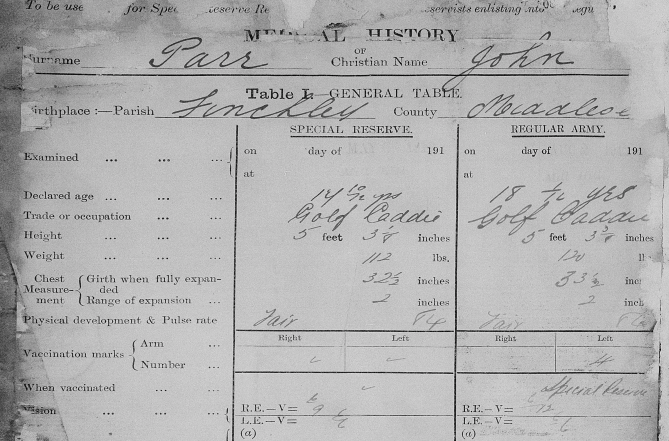 To be use for Spec eserve Re ervists enlisting into egu
MEDICAL HISTORY
OF
Surname Parr Christian Name John
Table I.—GENERAL TABLE.
Birthplace :—Parish Finchley County Middlese
SPECIAL RESERVE. REGULAR ARMY.
Examined ... ... ... on day of 191 on day of 191
at at
Declared age ... ... ... 17 10/12 yrs 18 1/12 yrs
Trade or occupation ... ... Golf Caddie Golf Caddie
Height ... ... ... 5 feet 3 inches 5 feet 3 inches
Weight ... ... ... 112 lbs. 120 lb
Chest Measure-ment { Girth when fully expanded 32½ inches 33½ inc
Range of expansion ... 2 inches 2 inch
Physical development & Pulse rate Fair 84 Fair
Right Left Right Left
Vaccination marks { Arm ...
Number ... 4
When vaccinated ... ... Special Reserve
Vision ... ... ... R.E.—V= 6/9 R.E.—V= 6/12
L.E.—V= 6/6 L.E.—V= 6
(a) (a)